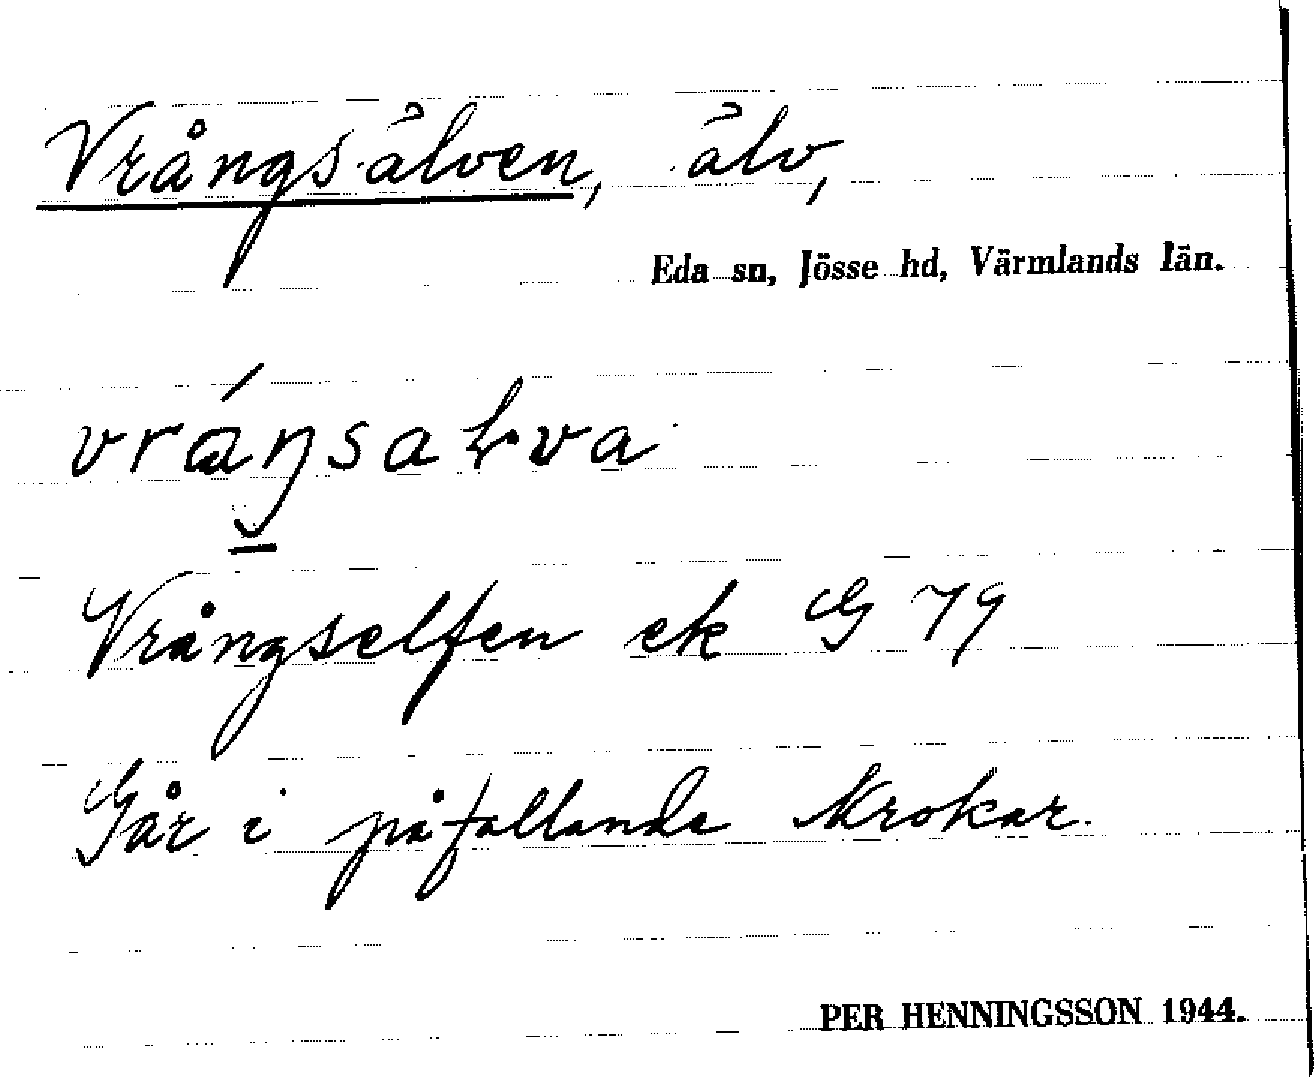 Vrångsälven, älv,
Eda sn, Jösse hd, Värmlands län.
vráŋsaɫva
Vrångselfen ek G 79
Går i påfallande krokar.
PER HENNINGSSON 1944.